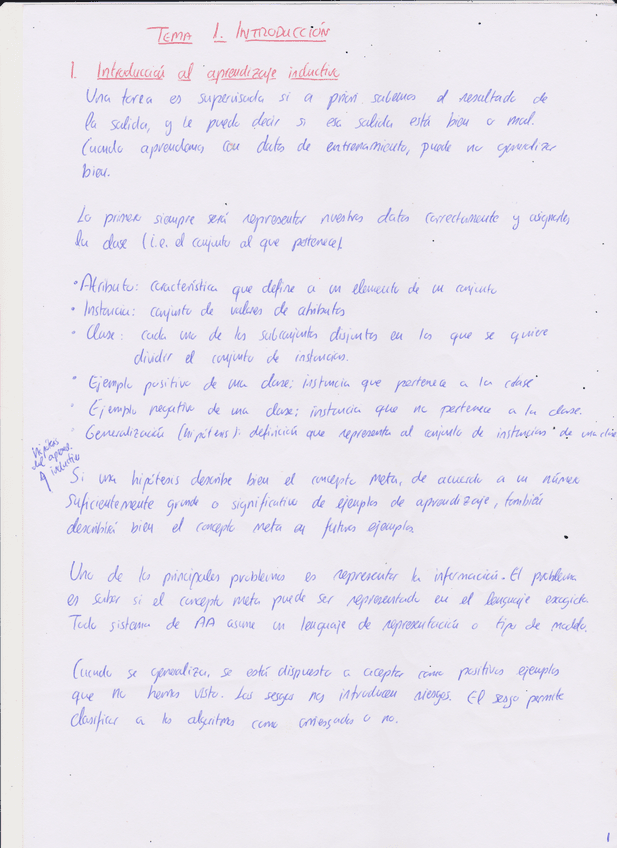 TEMA 1. INTRODUCCIÓN
1. Introducción al aprendizaje inductivo
Una tarea es supervisada si a priori sabemos el resultado de
la salida, y le puedo decir si esa salida está bien o mal.
Cuando aprendemos con datos de entrenamiento, puede no generalizar
bien.
Lo primero siempre será representar nuestros datos correctamente y asignarles
la clase (i.e. el conjunto al que pertenece).
· Atributo: característica que define a un elemento de un conjunto
· Instancia: conjunto de valores de atributos
· Clase: cada uno de los subconjuntos disjuntos en los que se quiere
dividir el conjunto de instancias.
· Ejemplo positivo de una clase: instancia que pertenece a la clase
· Ejemplo negativo de una clase: instancia que no pertenece a la clase.
· Generalización (hipótesis): definición que representa al conjunto de instancias de una clase
Hipótesis
del apren.
inductivo
Si una hipótesis describe bien el concepto meta, de acuerdo a un número
suficientemente grande o significativo de ejemplos de aprendizaje, también
describirá bien el concepto meta en futuros ejemplos
Uno de los principales problemas es representar la información. El problema
es saber si el concepto meta puede ser representado en el lenguaje escogido.
Todo sistema de AA asume un lenguaje de representación o tipo de modelo.
Cuando se generaliza, se está dispuesto a aceptar como positivos ejemplos
que no hemos visto. Los sesgos nos introducen riesgos. El sesgo permite
clasificar a los algoritmos como arriesgados o no.
1